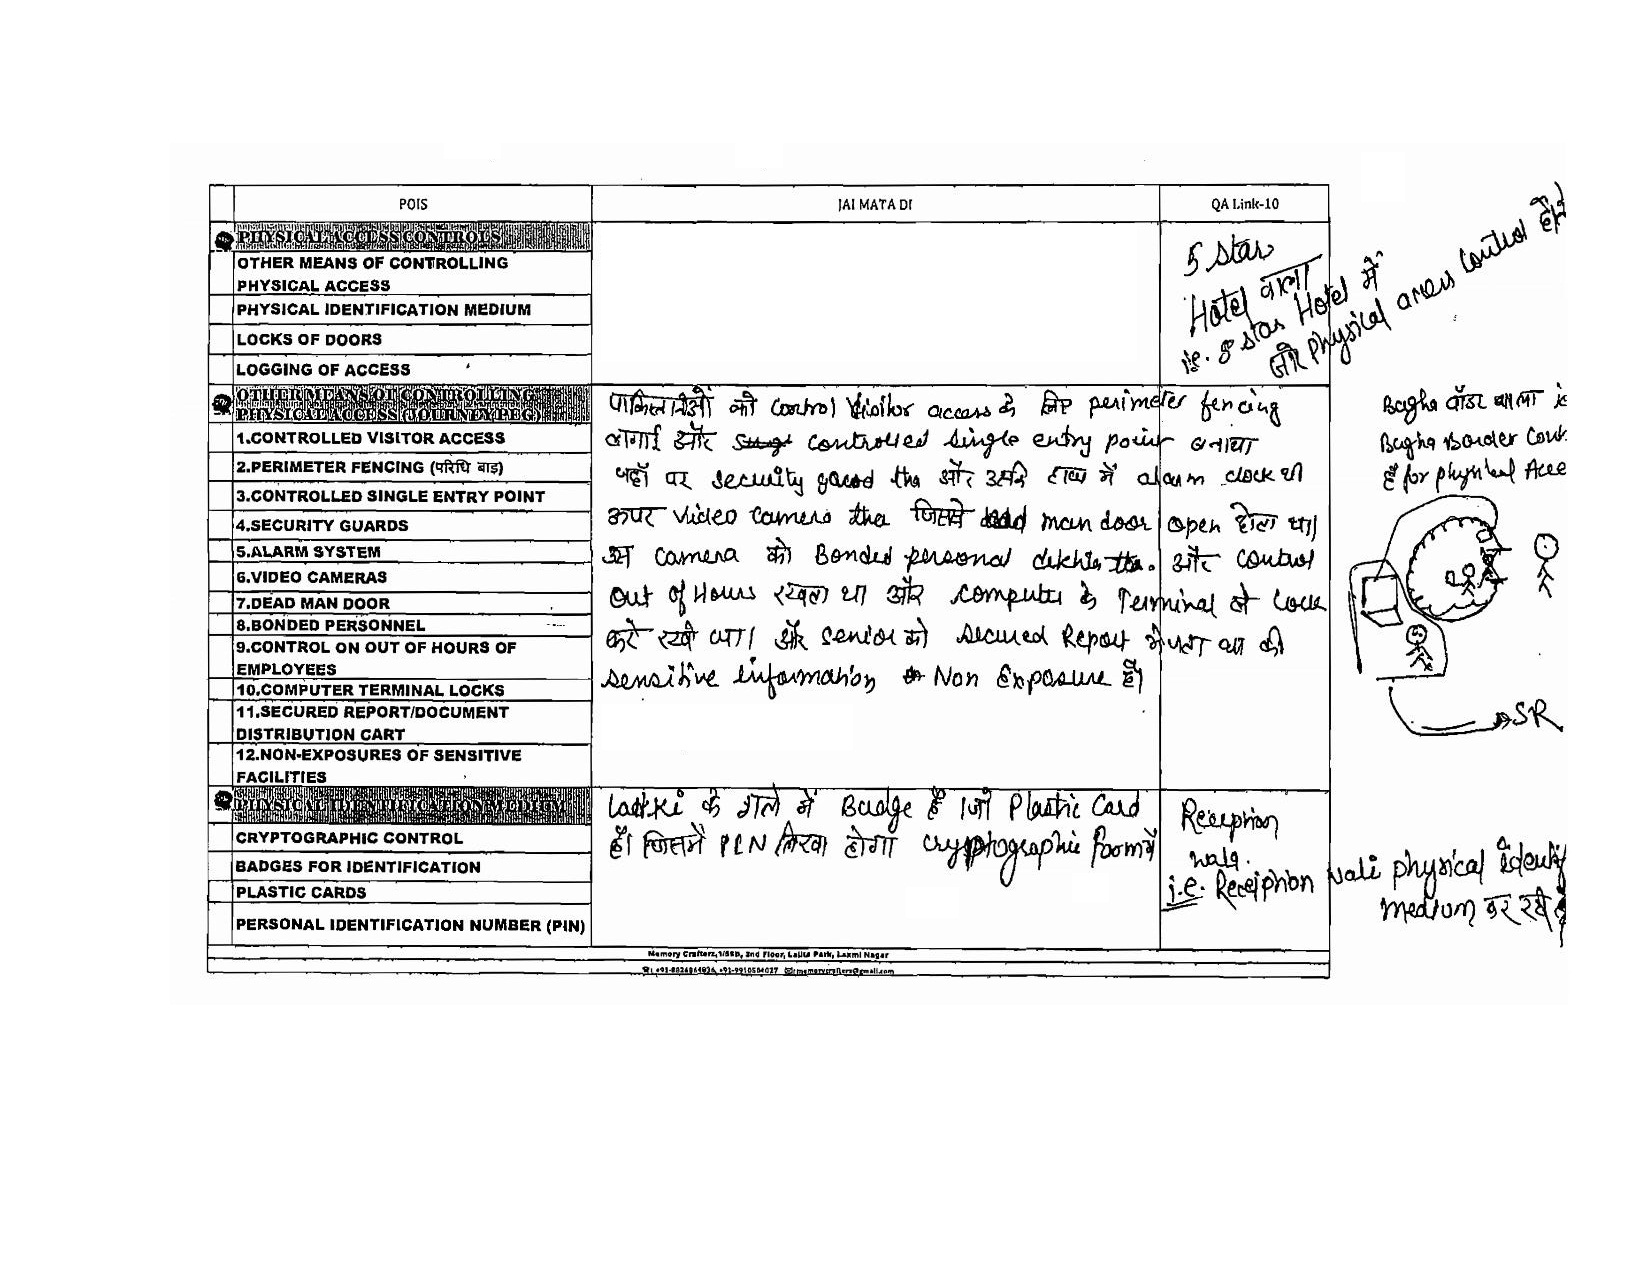 POIS
JAI MATA DI
QA Link-10
PHYSICAL ACCESS CONTROLS
OTHER MEANS OF CONTROLLING
PHYSICAL ACCESS
PHYSICAL IDENTIFICATION MEDIUM
LOCKS OF DOORS
LOGGING OF ACCESS
5 star
Hotel वाला
i.e. 5 star Hotel में
physical access control
OTHER MEANS OF CONTROLLING
PHYSICAL ACCESS (JOURNEY PEG)
1.CONTROLLED VISITOR ACCESS
2.PERIMETER FENCING (परिधि बाड़)
3.CONTROLLED SINGLE ENTRY POINT
4.SECURITY GUARDS
5.ALARM SYSTEM
6.VIDEO CAMERAS
7.DEAD MAN DOOR
8.BONDED PERSONNEL
9.CONTROL ON OUT OF HOURS OF
EMPLOYEES
10.COMPUTER TERMINAL LOCKS
11.SECURED REPORT/DOCUMENT
DISTRIBUTION CART
12.NON-EXPOSURES OF SENSITIVE
FACILITIES
को control visitor access के लिए perimeter fencing
लगाई और controlled single entry point बनाया
जहाँ पर security gaurd tha और उसके हाथ में alarm clock थी
ऊपर video camera tha जिससे dead man door open होता था।
उस camera को Bonded personal dekhte the. और control
out of Hours रखता था और computer के Terminal को Lock
करे रखी था। और senior को secured Report भेजता था की
sensitive information Non Exposure है।
Bagha बॉडर वाला
Bagha Border
है for physical
SR
PHYSICAL IDENTIFICATION MEDIUM
CRYPTOGRAPHIC CONTROL
BADGES FOR IDENTIFICATION
PLASTIC CARDS
PERSONAL IDENTIFICATION NUMBER (PIN)
Ladki के गले में Badge है जो Plastic Card
है। जिसमें PIN लिखा होगा cryptographic form में
Reception
wala.
i.e. Reception wali physical
medium कर रखे
Memory Crafterz,1/55B, 2nd Floor, Lalita Park, Laxmi Nagar